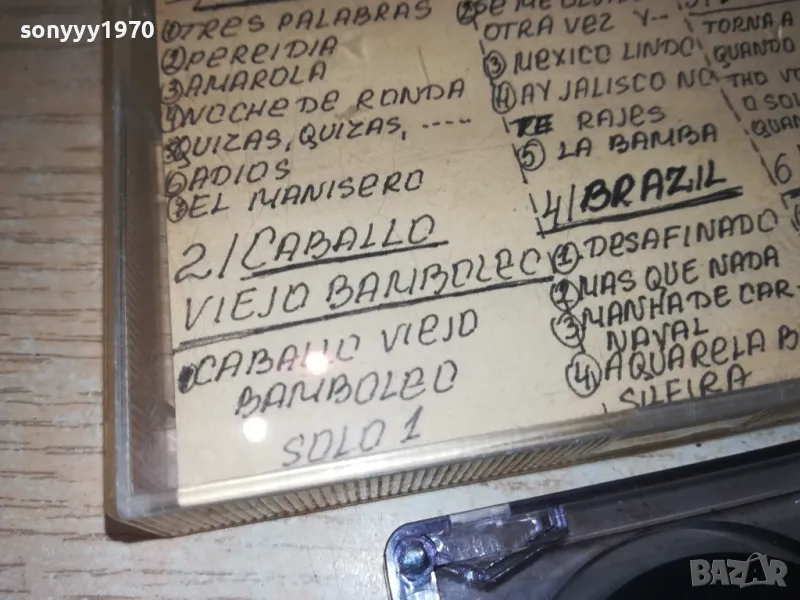 sonyyy1970
① TRES PALABRAS
② PEREIDIA
③ AMAROLA
④ NOCHE DE RONDA
QUIZAS, QUIZAS, -----
⑥ ADIOS
EL MANISERO
2/ CABALLO
VIEJO BAMBOLEO
CABALLO VIEJO
BAMBOLEO
SOLO 1
OTRA VEZ Y--
③ MEXICO LINDO
④ AY JALISCO NO
TE RAJES
⑤ LA BAMBA
4/ BRAZIL
① DESAFINADO
② MAS QUE NADA
③ MANHA DE CAR-
NAVAL
④ AQUARELA B
SILEIRA
TORNA A
QUANDO
THO VO
O SOL
QUAN
6
BAZAR